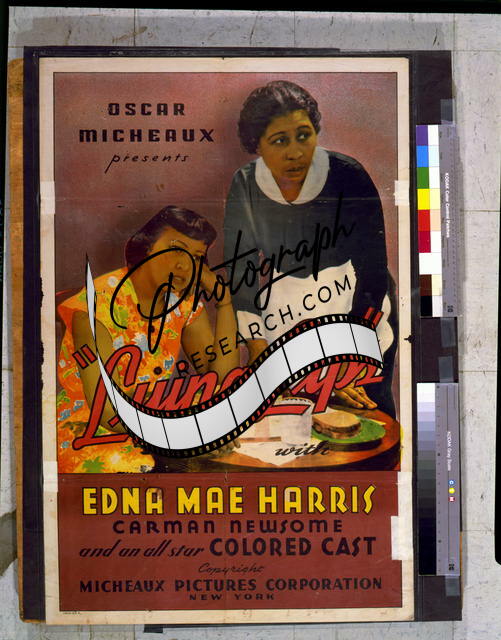 OSCAR
MICHEAUX
presents
Photograph
RESEARCH.COM
"Lying Lips"
with
EDNA MAE HARRIS
CARMAN NEWSOME
and an all star COLORED CAST
Copyright
MICHEAUX PICTURES CORPORATION
NEW YORK